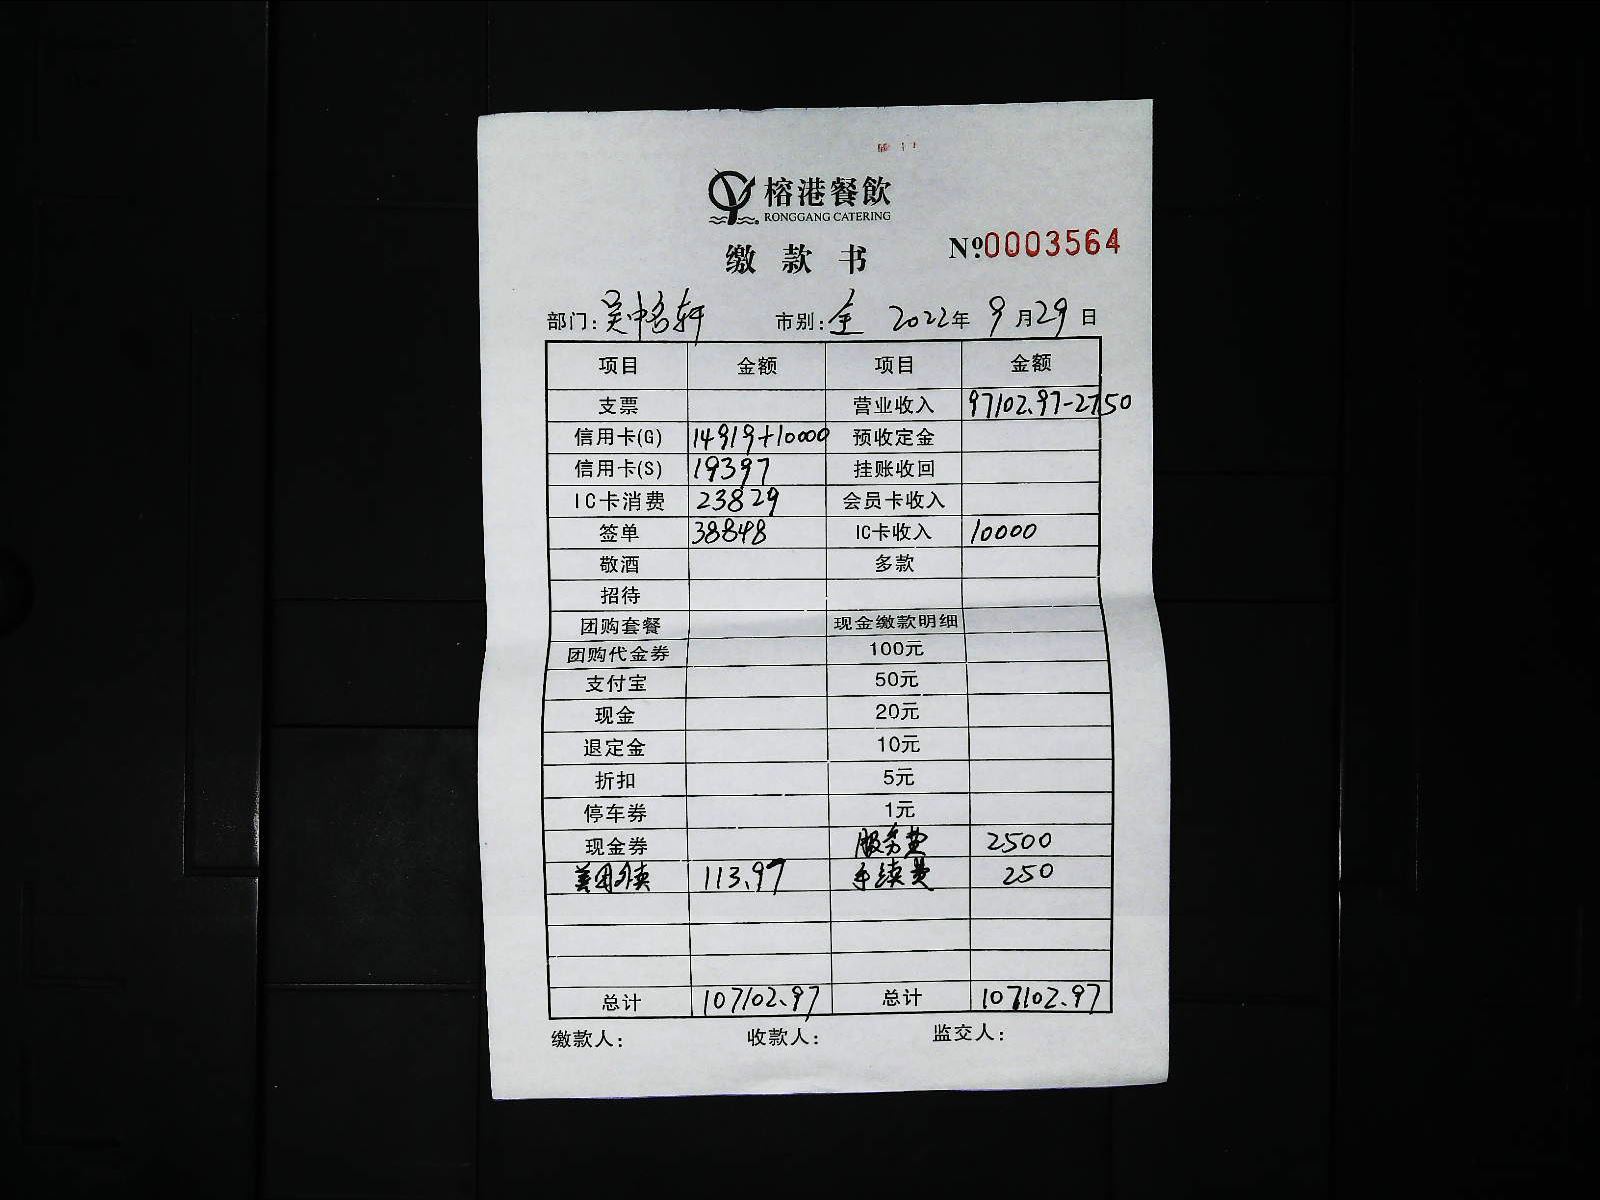 榕港餐飲
RONGGANG CATERING
缴款书 №0003564
部门:吴中名轩 市别:全 2022年9月29日
项目 金额 项目 金额
支票 营业收入 97102.97-2750
信用卡(G) 14919+10000 预收定金
信用卡(S) 19397 挂账收回
IC卡消费 23829 会员卡收入
签单 38848 IC卡收入 10000
敬酒 多款
招待
团购套餐 现金缴款明细
团购代金券 100元
支付宝 50元
现金 20元
退定金 10元
折扣 5元
停车券 1元
现金券 服务费 2500
美团外卖 113.97 手续费 250
总计 107102.97 总计 107102.97
缴款人: 收款人: 监交人: